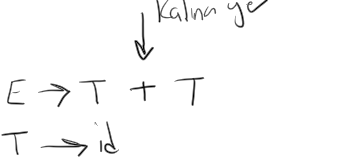 Kalma ye
E → T + T
T → id